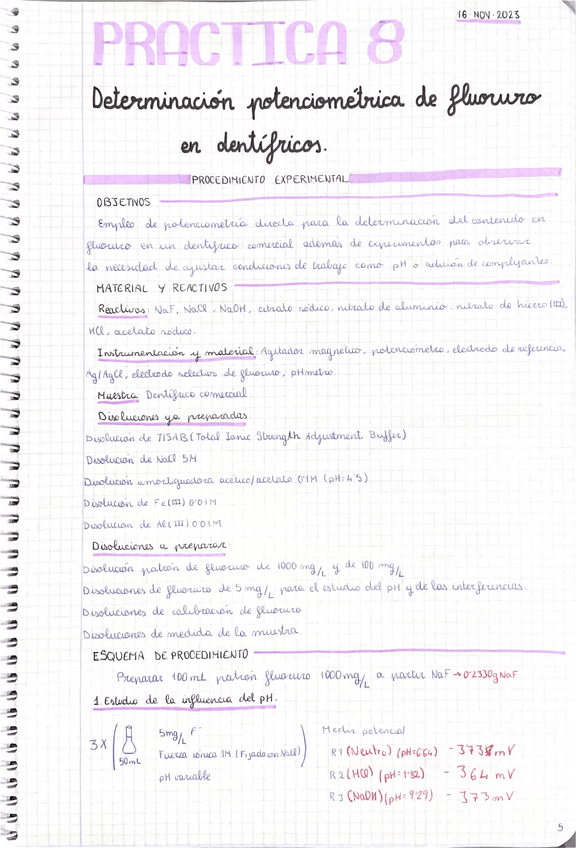 16-NOV-2023
PRACTICA 8
Determinación potenciométrica de fluoruro
en dentífricos.
PROCEDIMIENTO EXPERIMENTAL
OBJETIVOS
Empleo de potenciometría directa para la determinación del contenido en
fluoruro en un dentífrico comercial además de experimentos para observar
la necesidad de ajustar condiciones de trabajo como pH o adición de complejantes.
MATERIAL Y REACTIVOS
Reactivos: NaF, NaCl, NaOH, citrato sódico, nitrato de aluminio, nitrato de hierro (III),
HCl, acetato sódico.
Instrumentación y material: Agitador magnético, potenciómetro, electrodo de referencia,
Ag/AgCl, electrodo selectivo de fluoruro, pHmetro
Muestra Dentífrico comercial
Disoluciones ya preparadas
Disolución de TISAB (Total Ionic Strength Adjustment Buffer)
Disolución de NaCl 5M
Disolución amortiguadora acético/acetato 0'1M (pH=4'5)
Disolución de Fe(III) 0'01M
Disolución de Al(III) 0'01M
Disoluciones a preparar
Disolución patrón de fluoruro de 1000 mg/L y de 100 mg/L
Disoluciones de fluoruro de 5 mg/L para el estudio del pH y de las interferencias.
Disoluciones de calibración de fluoruro
Disoluciones de medida de la muestra
ESQUEMA DE PROCEDIMIENTO
Preparar 100 mL patrón fluoruro 1000 mg/L a partir NaF → 0'2330g NaF
1. Estudio de la influencia del pH.
5mg/L F⁻ Medir potencial
3 X 50mL Fuerza iónica 1M (Fijado con NaCl) R1 (Neutro) (pH=6'64) -373 mV
pH variable R2 (HCl) (pH=1'82) -364 mV
R3 (NaOH) (pH=9'29) -373 mV
5